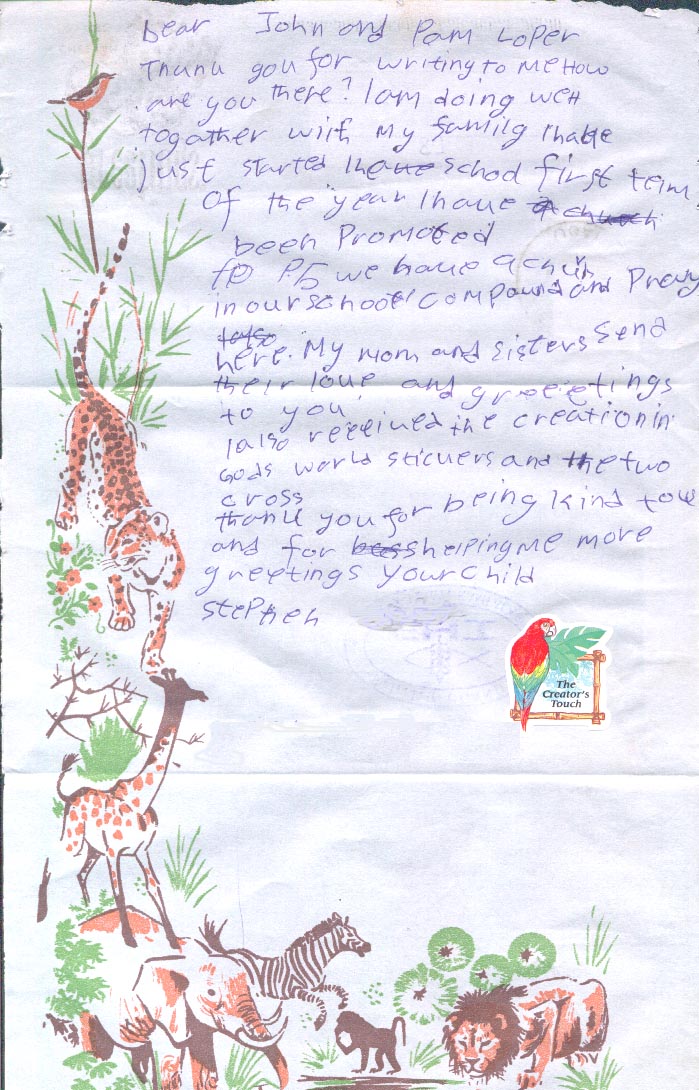 Dear John and Pam Loper
Thank you for writing to me How
are you there? I am doing well
together with my family I have
just started I have school first term
of the year I have a church
been Promoted
to P5 we have a church
in our school compound and Pray
also
here. My mom and sisters send
their love and greeetings
to you
I also received the creation in
Gods world stickers and the two
cross
thank you for being kind to us
and for helping me more
greetings your child
Stephen
The
Creator's
Touch